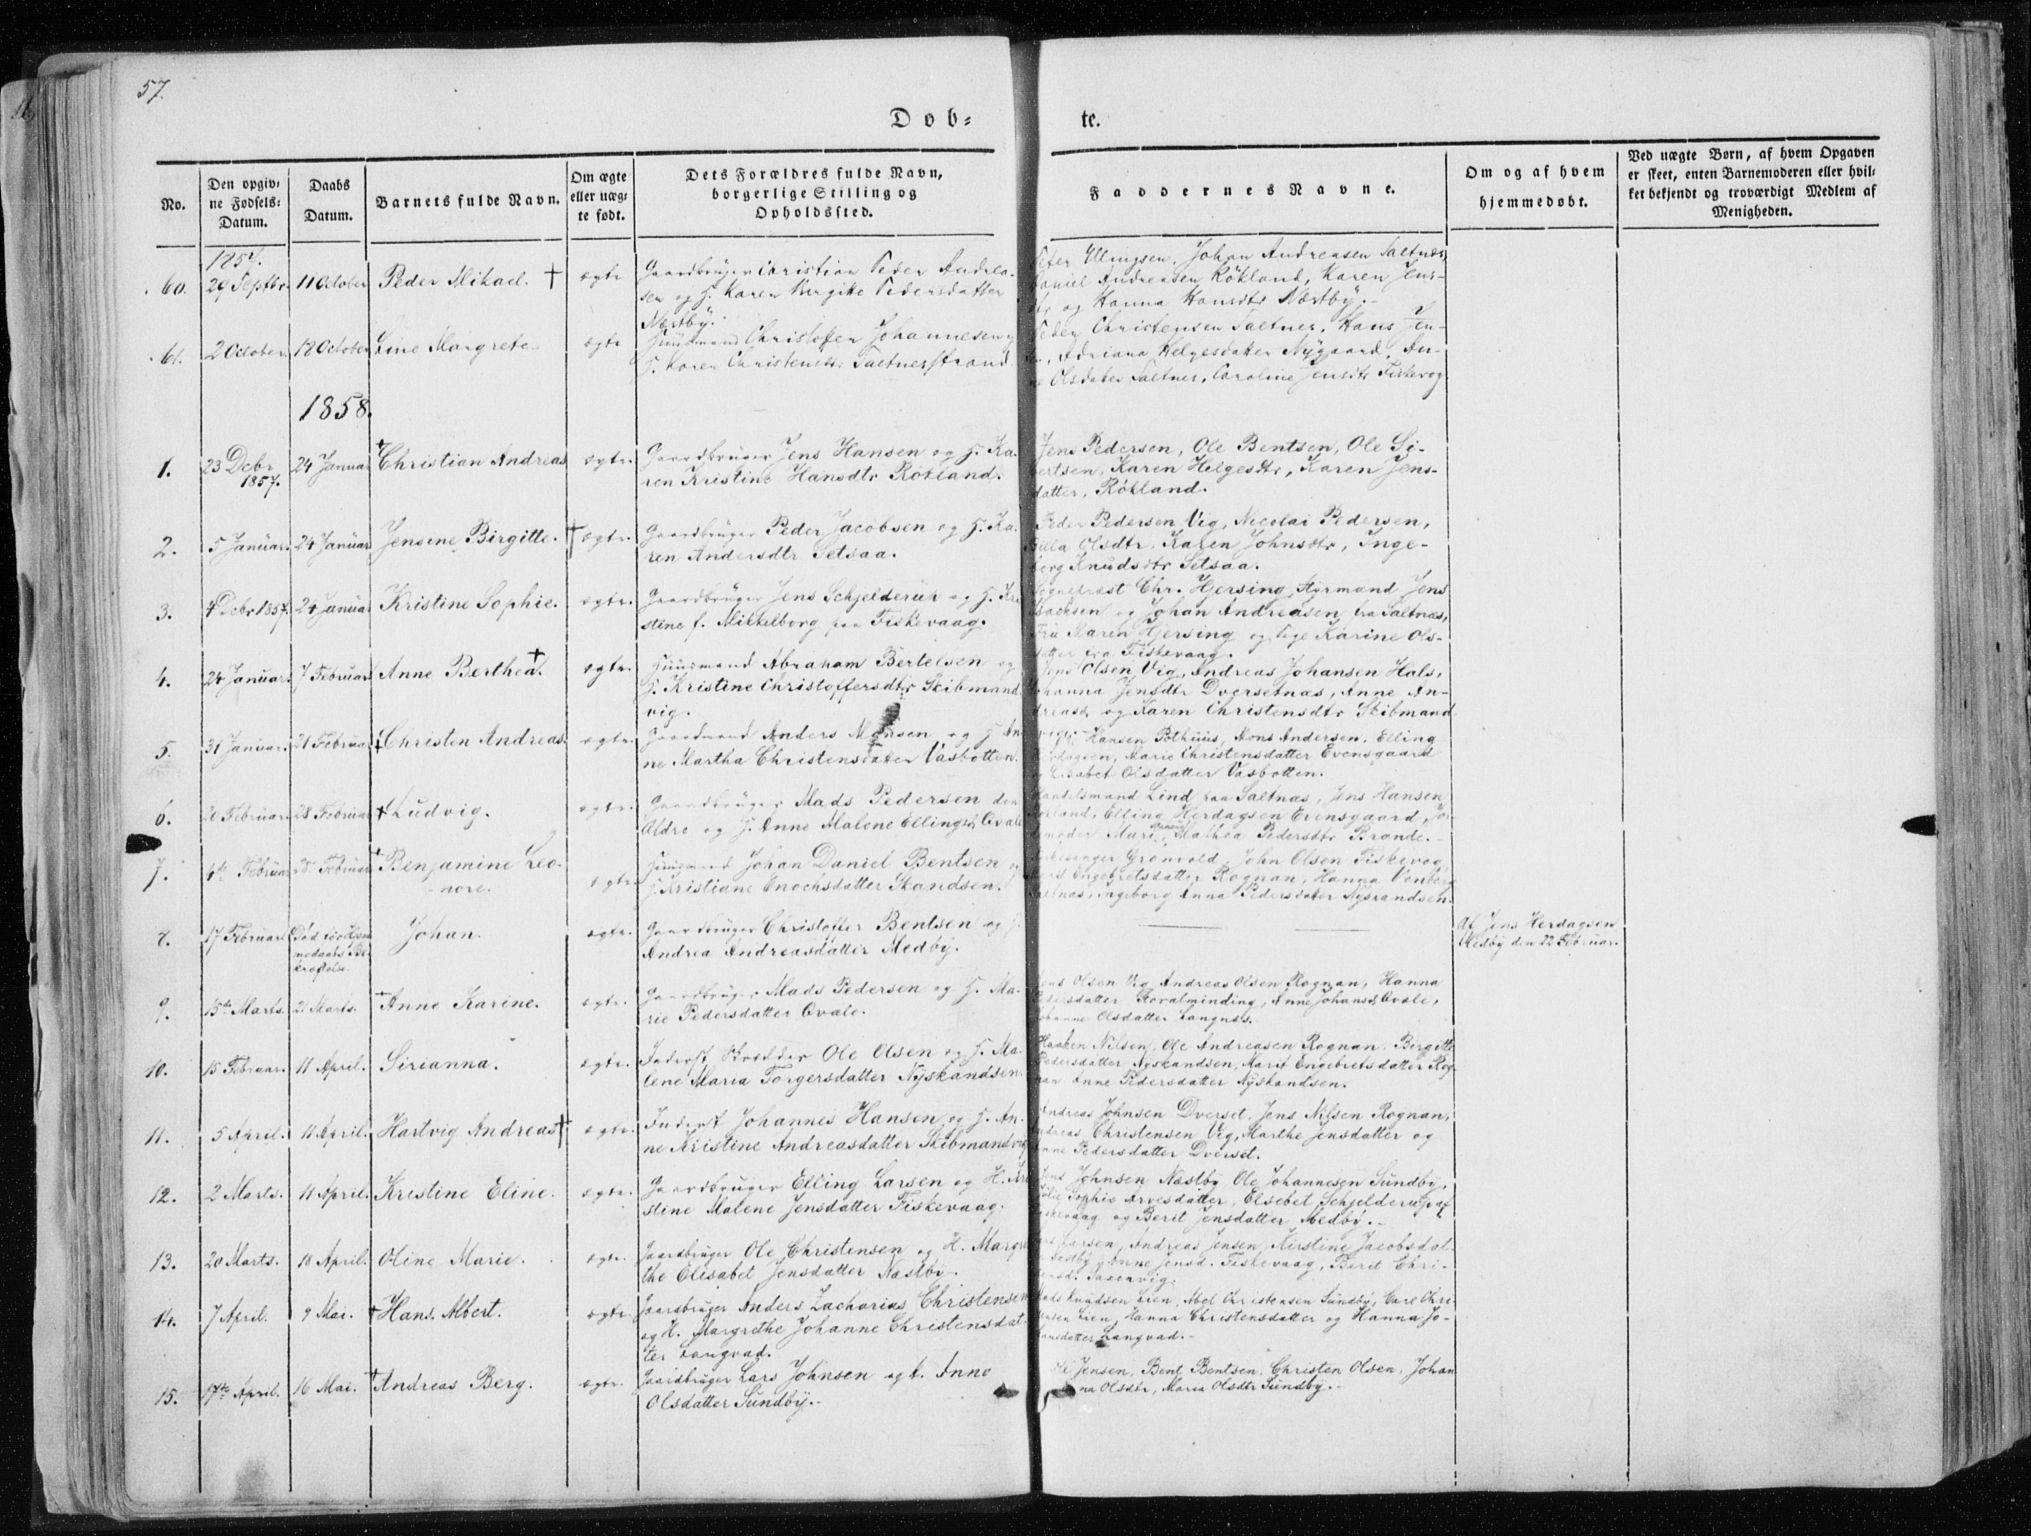 57.
Døb-
te.
No.
Den opgiv-
ne Fødsels-
Datum.
Daabs
Datum.
Barnets fulde Navn.
Om ægte
eller uæg-
te født.
Dets Forældres fulde Navn,
borgerlige Stilling og
Opholdssted.
Faddernes Navne.
Om og af hvem
hjemmedøbt.
Ved uægte Børn, af hvem Opgaven
er skeet, enten Barnemoderen eller hvil-
ket bekjendt og troværdigt Medlem af
Menigheden.
1857.
60. 29 Septbr. 11 October Peder Mikael. † ægte Gaardbruger Christian Peder Andrea-
sen og H. Karen Birgitte Pedersdatter
Næstby.
Peter Ellingsen, Johan Andreasen Saltnæs,
Daniel Andreasen Rökland, Karen Jens-
og Hanna Hansdtr Næstby.
61. 2 October 18 October Line Margrete. ægte Huusmand Christofer Johannesen og
H. Karen Christensdtr Saltnesstrand.
Peder Christensen Saltnes, Hans Jen-
Adriana Helgesdatter Nÿgaard, An-
ne Olsdatter Saltnes, Caroline Jensdtr Fiskevog
1858.
1. 23 Debr 1857. 24 Januar † Christian Andreas ægte. Gaardbruger Jens Hansen og H. Ka-
ren Kristine Hansdtr Rökland.
Jens Pedersen, Ole Bentsen, Ole Si-
bertsen, Karen Helgesdtr, Karen Jens-
datter, Rökland.
2. 5 Januar. 24 Januar Jensine Birgitte. † ægte. Gaardbruger Peder Jacobsen og H. Ka-
ren Andersdtr Setsaa.
Peder Pedersen Vig, Nicolai Pedersen,
Olsdtr, Karen Johnsdtr, Inge-
borg Knudsdtr Setsaa.
3. 4 Debr 1857. 24 Januar Kristine Sophie. ægte. Gaardbruger Jens Schjelderup og H. Kri-
stine f. Mikkelborg paa Fiskevaag.
Sogneprest Chr. Hjersing, Styrmand Jens
Isachsen og Johan Andreasen fra Saltnæs,
Fru Karen Hjersing og Pige Karine Ols-
datter fra Fiskevaag.
4. 24 Januar. 7 Februar. Anne Berthea. † ægte. Huusmand Abraham Bertelsen og
H. Kristine Christoffersdtr Skibmand
vig.
Jens Olsen Vig, Andreas Johansen Hals,
Johanna Jensdtr Dversetnæs, Anne An-
dreasd. og Karen Christensdtr Skibmand
5. 31 Januar. 21 Februar † Christen Andreas. ægte. Gaardmand Anders Monsen og H. An-
ne Martha Christensdatter Vasbotten.
Hansen Pothuus, Mons Andersen, Elling
Herdagsen, Marie Christensdatter Evensgaard
Elisabet Olsdatter Vasbotten.
6. 20 Februar. 28 Februar † Ludvig. ægte. Gaardbruger Mads Pedersen den
Ældre og H. Anne Malene Ellingsd. Qvale
Handelsmand Lind paa Saltnæs, Jens Hansen
Rokland, Elling Herdagsen Evensgaard, Jor-
demoder Marie Mathea Pedersdtr Brande.
7. 4de Februar 28 Februar † Benjamine Leo-
nore. ægte. Huusmand Johan Daniel Bentsen og
H. Kristiane Enochsdatter Skandsen.
Kirkesanger Grønvold, John Olsen Fiskevog,
Engebretsdatter Rognan, Hanna Venberg
Saltnæs, Ingeborg Anna Pedersdatter Nÿskandsen.
8. 17 Februar Død før Hjem-
medaabs Be-
kræftelse. Johan. ægte. Gaardbruger Christoffer Bentsen og H.
Andrea Andreasdatter Medby.
Af Jens Herdagsen
Medby den 22 Februar.
9. 15de Marts. 21 Marts. † Anne Karine. ægte. Gaardbruger Mads Pedersen og H. Ma-
rie Pedersdatter Qvale.
Jens Olsen Vig, Andreas Olsen Rognan, Hanna
Pedersdatter Storalminding, Anne Johansd. Qvale,
Johanne Olsdatter Langnes.
10. 15 Februar. 11 April. Sirianna. ægte. Inderst Skrædder Ole Olsen og H. Ma-
lene Maria Torgersdatter Nÿskandsen.
Haaken Nilsen, Ole Andreasen Rognan, Birgitte
Pedersdatter Nÿskandsen, Marit Engebretsdatter Rog-
nan Anne Pedersdatter Nÿskandsen.
11. 5 April. 11 April. Hartvig Andreas † ægte. Inderst Johannes Hansen og H. An-
ne Kristine Andreasdatter Skibmandvig
Andreas Johnsen Dverset, Jens Nilsen Rognan,
Andreas Christensen Vig, Marthe Jensdatter og
Anne Pedersdatter Dverset.
12. 2 Marts. 11 April. Kristine Eline. ægte. Gaardbruger Elling Larsen og H. Kri-
stine Malene Jensdatter Fiskevaag.
Jens Johnsen Næstby, Ole Johannesen Sundby,
Julie Sophie Arvesdatter, Elsebet Schjelderup af
Fiskevaag og Berit Jensdatter Medbÿ.
13. 20 Marts. 18 April. Oline Marie. ægte. Gaardbruger Ole Christensen og H. Margre-
the Elisabet Jensdatter Næstby.
Larsen, Andreas Jensen, Kirstine Jacobsdat.
Næstby, Anne Jensd. Fiskevaag, Berit Chri-
stensd. Saxenvig.
14. 7 April. 9 Mai. † Hans Albert. ægte. Gaardbruger Anders Zacharias Christensen
og H. Margrethe Johanne Christensdat-
ter Langvad.
Mads Knudsen Lien, Abel Christensen Sundby, Carl Chri-
stensen Lien, Hanna Christensdatter og Hanna Jo-
hansdatter Langvad.
15. 17de April. 16 Mai. † Andreas Berg. ægte. Gaardbruger Lars Johnsen og H. Anne
Olsdatter Sundbÿ.
Ole Jensen, Bent Bentsen, Christen Olsen, Johan-
na Olsdtr, Maria Olsdtr Sundbÿ.